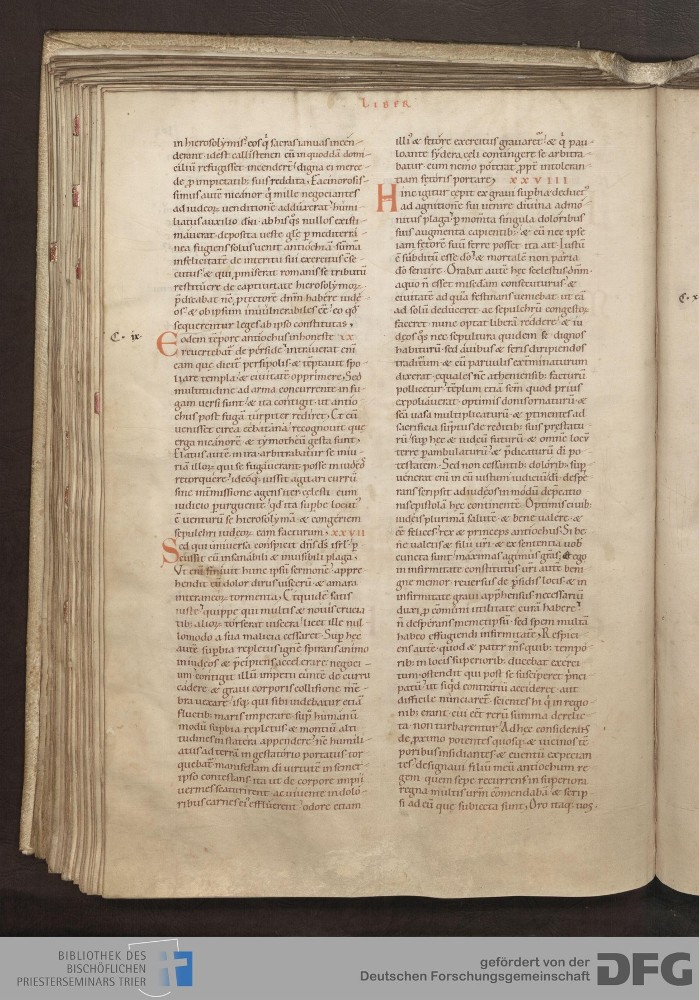 LIBER
in hierosolymis. eos q̨ sacras ianuas incen-
derant. idest callistenen cū in quoddā domi-
ciliū refugisset incendert. digna ei merce-
de, p impietatib; suis reddita. Facinorosis-
simus autē nicanor q̨ mille negociantes
ad iudeoꝝ uenditionē adduxerat. humi-
liatus auxilio dn̄i ab his q̨s nullos existi-
mauerat. deposita ueste gl̄e p mediterra-
nea fugiens solus uenit antiochiā. sūmā
infelicitatē de interitu sui exercitus c̄se-
cutus. & qui pmiserat romanis se tributū
restituere de captiuitate hierosolymoꝝ.
p̄dicabat nc̄ ptectorē dn̄m habere iude-
os. & ob ipsum inuulnerabiles eē. eo qđ
sequerentur leges ab ipso constitutas,
C. ix.
Eodem tēpore antiochus inhoneste IX
reuertebat de perside. Intrauerat enī
eam que dicit persipolis. & teptauit spo-
liare templa. & ciuitatē opprimere. Sed
multitudine ad arma concurrente in fu-
gam uersi sunt. & ita contigit ut antio-
chus post fugā turpiter rediret. Et cū
uenisset circa ecbatanā. recognouit que
erga nicanorē & tymotheū gesta sunt.
Elatus autē in ira arbitrabatur se iniu-
riā illoꝝ qui se fugauerant posse in iudeos
retorquere. ideoq; iussit agitari currū
sine intmissione agens iter. celesti eum
iudicio purguente. qđ ita supbe locut'
ē uenturū se hierosolymā & congeriem
sepulchri iudeoꝝ eam facturum, XXVII
Sed qui uniuersa conspicit dn̄s d̄s isrl. p
cussit eū insanabili & inuisibili plaga.
Ut enī finiuit hunc ipsū sermonē. appre-
hendit eū dolor dirus uiscerū & amara
internoꝝ tormenta. Et quidē satis
iuste. quippe qui multis & nouis crucia
tib; alioꝝ torserat uiscera. licet ille nul-
lomodo a sua malicia cessaret. Sup hec
autē supbia repletus ignē spirans animo
in iudeos & p̄cipiens accelerare negoci-
um. contigit illū impetu eūntē de curru
cadere & graui corporis collisione mē-
bra uexari. isq; qui sibi uidebatur etiā
fluctib; maris imperare sup humanū
modū supbia repletus & montiū alti
tudines in statera appendere. nc̄ humili-
atus ad terrā in gestatorio portatus tor-
quebat. manifestam di uirtutē in semet-
ipso contestans. ita ut de corpore impii
uermes scaturirent. ac uiuente in dolo-
ribus carnes ei' effluerent. odore etiam
illi' & fetore exercitus grauaret. & q̨ pau-
lo ante sydera celi contingere se arbitra-
batur. eum nemo poterat, ppt intoleran-
tiam fetoris portare, XXVIII
Hinc igitur cepit ex graui supbia deduct'
ad agnitionē sui uenire diuina admo-
nitus plaga. p momta singula doloribus
suis augmenta capientib;. & cū nec ipse
iam fetorē suū ferre posset. ita ait. Iustū
ē subditū esse dō. & mortalē non paria
dō sentire. Orabat autē hec scelestus dn̄m.
a quo n̄ esset misedam consecuturus. &
ciuitatē ad quā festinans ueniebat ut eā
ad solū deduceret. ac sepulchrū congestoꝝ
faceret. nunc optat liberā reddere. & iu
deos q̨s nec sepultura quidem se dignos
habiturū. sed auibus & feris diripiendos
traditurū. & cū paruulis exterminaturum
dixerat. equales nc̄ atheniensib; facturū
pollicet. templum etiā scm̄ quod prius
expoliauerat. optimis donis ornaturū. &
sc̄a uasa multiplicaturū. & ptinentes ad
sacrificia sūptus de reditib; suis prestatu-
rū. sup hec & iudeū futurū. & omnē locū
terre pambulaturū. & p̄dicaturū di po-
testatem. Sed non cessantib; dolorib; sup
uenerat enī in eū iustum iudiciū di. despe-
rans scripsit ad iudeos in modū depcatio
nis epistolā hec continentē. Optimis ciuib;
iudeis plurimā salutē. & bene ualere. &
eē felices. rex & princeps antiochus. Si be-
ne ualetis & filii uri & ex sententia uob
cuncta sunt. maximas agimus gras. & ego
in infirmitate constitutus. uri autē beni
gne memor. reuersus de p̄sidis locis. & in
infirmitate graui apphensus necessariū
duxi, p cōmuni utilitate curā habere.
n̄ desperans memetipsū. sed spem multā
habeo effugiendi infirmitatē, Respici-
ens autē quod & pater ms̄ quib; tempo-
rib; in locis superiorib; ducebat exerci
tum. ostendit qui post se susciperet p̄nci-
patū. ut siq̄d contrariū accideret aut
difficile nunciaret. scientes hi q̨ in regio-
nib; erant cui eēt rerū summa derelic-
ta. non turbarentur. Adhec considerans
de, pximo potentes quosq; & uicinos te-
poribus insidiantes & euentū expectan
tes. designaui filiū meū antiochum re-
gem. quem sepe recurrens in superiora
regna multis urm̄ cōmendabā. & scrip-
si ad eū que subiecta sunt, Oro itaq; uos.
C. x
BIBLIOTHEK DES
BISCHÖFLICHEN
PRIESTERSEMINARS TRIER
gefördert von der
Deutschen Forschungsgemeinschaft
DFG